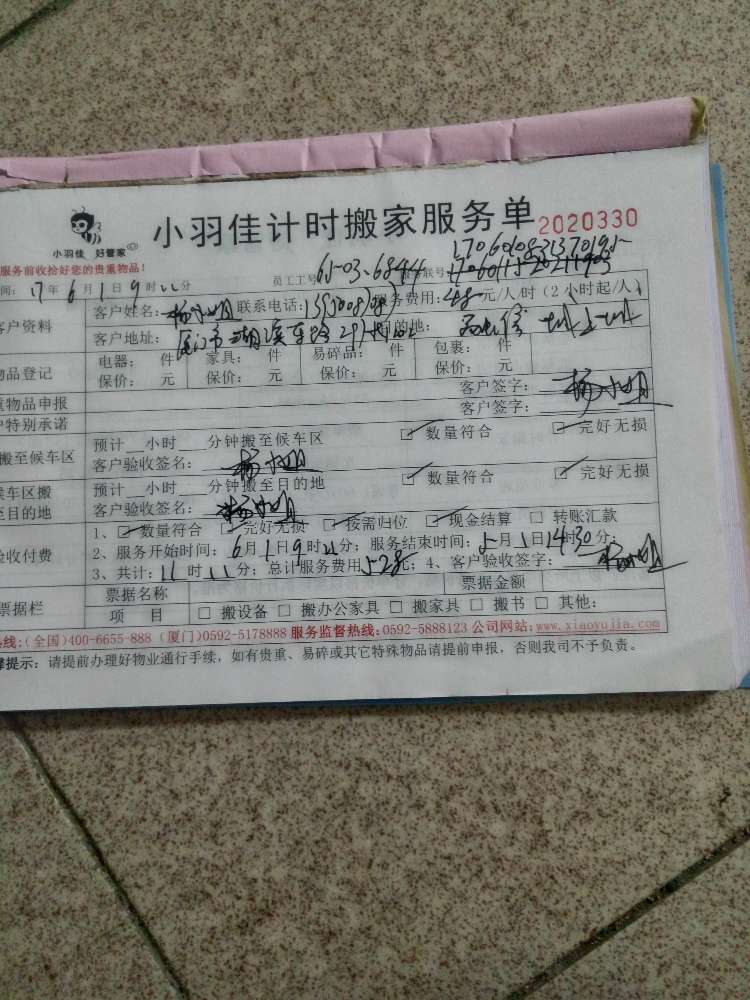 小羽佳 好管家
小羽佳计时搬家服务单 2020330
服务前收拾好您的贵重物品!
间: 17年6月1日9时 分 员工工号 65-03-6844 服务联号
客户资料
客户姓名: 杨小姐 联系电话: 服务费用: 48元/人/时(2小时起/人)
客户地址: 厦门市 湖滨东路29 目的地:
物品登记
电器: 件 家具: 件 易碎品: 件 包裹: 件
保价: 元 保价: 元 保价: 元 保价: 元
重物品申报 客户签字: 杨小姐
户特别承诺 客户签字:
搬至候车区
预计 小时 分钟搬至候车区 ☑ 数量符合 ☑ 完好无损
客户验收签名: 杨小姐
候车区搬至目的地
预计 小时 分钟搬至目的地 ☑ 数量符合 ☑ 完好无损
客户验收签名: 杨小姐
验收付费
1、☑ 数量符合 ☑ 完好无损 ☑ 按需归位 ☑ 现金结算 □ 转账汇款
2、服务开始时间: 6月1日9时 分; 服务结束时间: 月1日14时30分;
3、共计: 11时 分; 总计服务费用 528元; 4、客户验收签字: 杨小姐
票据栏
票据名称 票据金额
项 目 □ 搬设备 □ 搬办公家具 □ 搬家具 □ 搬书 □ 其他:
热线:(全国)400-6655-888 (厦门)0592-5178888 服务监督热线:0592-5888123 公司网站:www.xiaoyujia.com
提示: 请提前办理好物业通行手续,如有贵重、易碎或其它特殊物品请提前申报,否则我司不予负责。